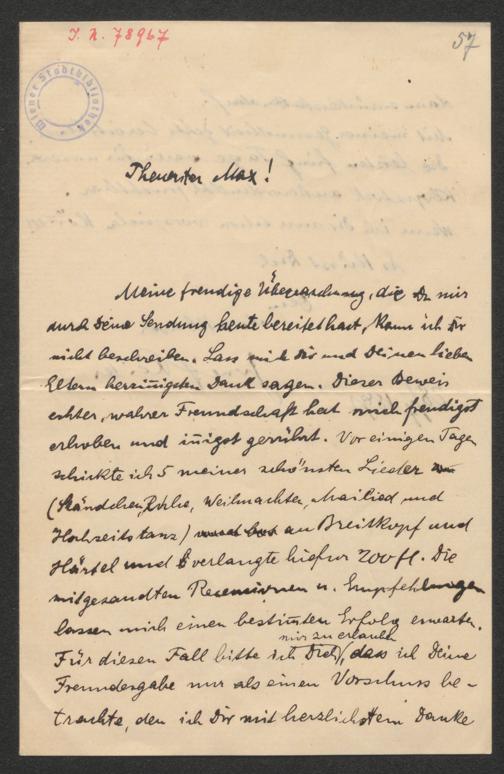 I. N. 78967
57
Wiener Stadtbibliothek
Theurster Max!
Meine freudige Überraschung, die Du mir
durch Deine Sendung heute bereitet hast, kann ich Dir
nicht beschreiben. Lass mich Dir und Deinen lieben
Eltern herzinnigsten Dank sagen. Dieser Beweis
echter, wahrer Freundschaft hat mich freudigst
erhoben und innigst gerührt. Vor einigen Tagen
schickte ich 5 meiner schönsten Lieder
(Ständchen, Rache, Weihnachten, Mailied und
Hochzeitstanz) an Breitkopf und
Härtel und verlangte hiefür 200 fl. Die
mitgesandten Recensionen u. Empfehlungen
lassen mich einen bestimten Erfolg erwarten.
mir zu erlauben
Für diesen Fall bitte ich Dich, dass ich Deine
Freundesgabe nur als einen Vorschuss be-
trachte, den ich Dir mit herzlichstem Danke